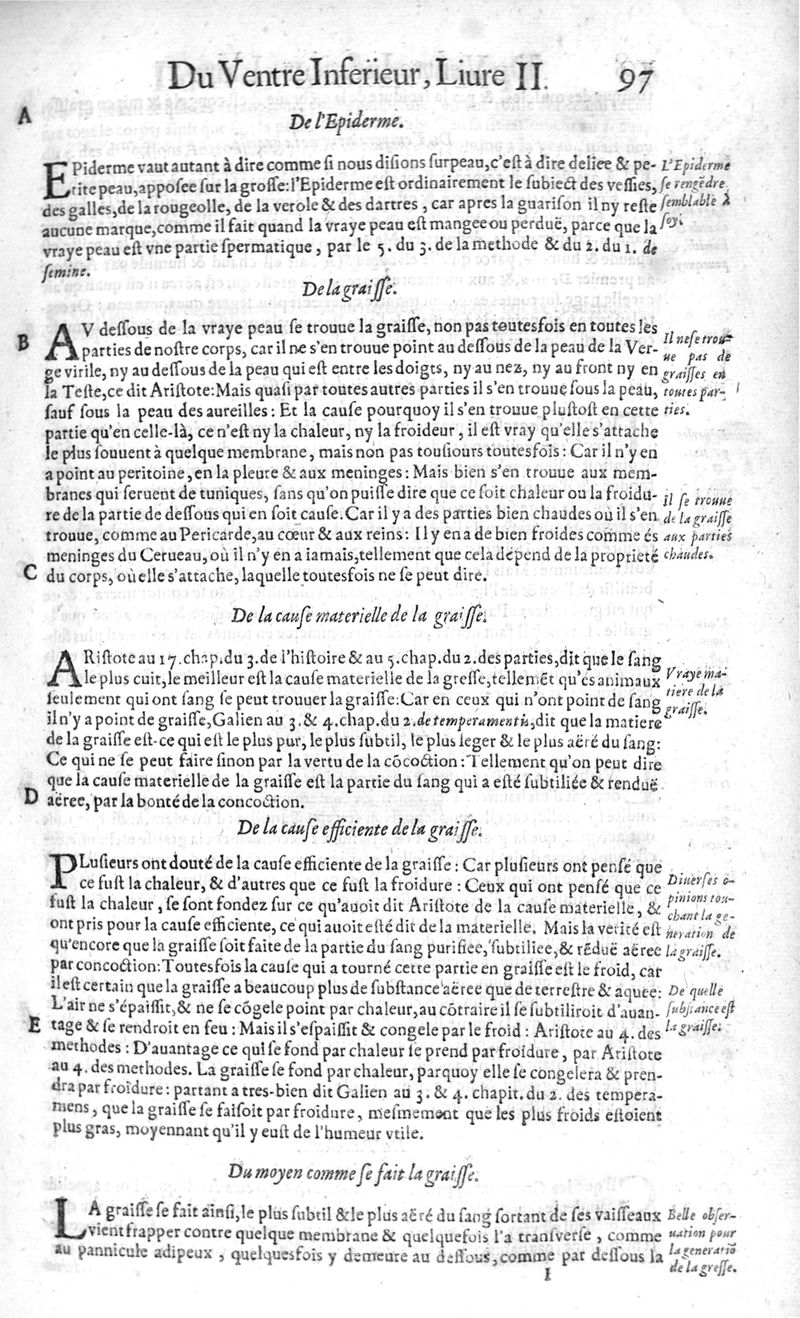 Du Ventre Inferieur, Liure II. 97
A
De l'Epiderme.
EPiderme vaut autant à dire comme si nous disions surpeau, c'est à dire deliee & pe-
tite peau, apposee sur la grosse: l'Epiderme est ordinairement le subiect des vessies,
des galles, de la rougeolle, de la verole & des dartres, car apres la guarison il ny reste
aucune marque, comme il fait quand la vraye peau est mangee ou perduë, parce que la
vraye peau est vne partie spermatique, par le 5. du 3. de la methode & du 2. du 1. de
semine.
L'Epiderme
se rengēdre
semblable à
soy.
De la graisse.
B
AV dessous de la vraye peau se trouue la graisse, non pas toutesfois en toutes les
parties de nostre corps, car il ne s'en trouue point au dessous de la peau de la Ver-
ge virile, ny au dessous de la peau qui est entre les doigts, ny au nez, ny au front ny en
la Teste, ce dit Aristote: Mais quasi par toutes autres parties il s'en trouue sous la peau,
sauf sous la peau des aureilles: Et la cause pourquoy il s'en trouue plustost en cette
partie qu'en celle-là, ce n'est ny la chaleur, ny la froideur, il est vray qu'elle s'attache
le plus souuent à quelque membrane, mais non pas tousiours toutesfois: Car il n'y en
a point au peritoine, en la pleure & aux meninges: Mais bien s'en trouue aux mem-
branes qui seruent de tuniques, sans qu'on puisse dire que ce soit chaleur ou la froidu-
re de la partie de dessous qui en soit cause. Car il y a des parties bien chaudes où il s'en
trouue, comme au Pericarde, au cœur & aux reins: Il y en a de bien froides comme és
meninges du Cerueau, où il n'y en a iamais, tellement que cela dépend de la proprieté
C
du corps, où elle s'attache, laquelle toutesfois ne se peut dire.
Il ne se trou-
ue pas de
graisses en
toutes par-
ties.
il se trouue
de la graisse
aux parties
chaudes.
De la cause materielle de la graisse.
ARistote au 17. chap. du 3. de l'histoire & au 5. chap. du 2. des parties, dit que le sang
le plus cuit, le meilleur est la cause materielle de la gresse, tellemēt qu'és animaux
seulement qui ont sang se peut trouuer la graisse: Car en ceux qui n'ont point de sang
il n'y a point de graisse, Galien au 3. & 4. chap. du 2. de temperamentis, dit que la matiere
de la graisse est-ce qui est le plus pur, le plus subtil, le plus leger & le plus aëré du sang:
Ce qui ne se peut faire sinon par la vertu de la cōcoction: Tellement qu'on peut dire
que la cause materielle de la graisse est la partie du sang qui a esté subtiliée & renduë
D
aëree, par la bonté de la concoction.
Vraye ma-
tiere de la
graisse.
De la cause efficiente de la graisse.
PLusieurs ont douté de la cause efficiente de la graisse: Car plusieurs ont pensé que
ce fust la chaleur, & d'autres que ce fust la froidure: Ceux qui ont pensé que ce
fust la chaleur, se sont fondez sur ce qu'auoit dit Aristote de la cause materielle, &
ont pris pour la cause efficiente, ce qui auoit esté dit de la materielle. Mais la verité est
qu'encore que la graisse soit faite de la partie du sang purifiee, subtiliee, & rēduë aëree
par concoction: Toutesfois la cause qui a tourné cette partie en graisse est le froid, car
il est certain que la graisse a beaucoup plus de substance aëree que de terrestre & aquee:
L'air ne s'épaissit, & ne se cōgele point par chaleur, au cōtraire il se subtiliroit d'auan-
E
tage & se rendroit en feu: Mais il s'espaissit & congele par le froid: Aristote au 4. des
methodes: D'auantage ce qui se fond par chaleur se prend par froidure, par Aristote
au 4. des methodes. La graisse se fond par chaleur, parquoy elle se congelera & pren-
dra par froidure: partant a tres-bien dit Galien au 3. & 4. chapit. du 2. des tempera-
mens, que la graisse se faisoit par froidure, mesmement que les plus froids estoient
plus gras, moyennant qu'il y eust de l'humeur vtile.
Diuerses o-
pinions tou-
chant la ge-
neration de
la graisse.
De quelle
substance est
la graisse.
Du moyen comme se fait la graisse.
LA graisse se fait ainsi, le plus subtil & le plus aëré du sang sortant de ses vaisseaux
vient frapper contre quelque membrane & quelquefois l'a transverse, comme
au pannicule adipeux, quelquesfois y demeure au dessous, comme par dessous la
Belle obser-
uation pour
la generatiō
de la gresse.
I